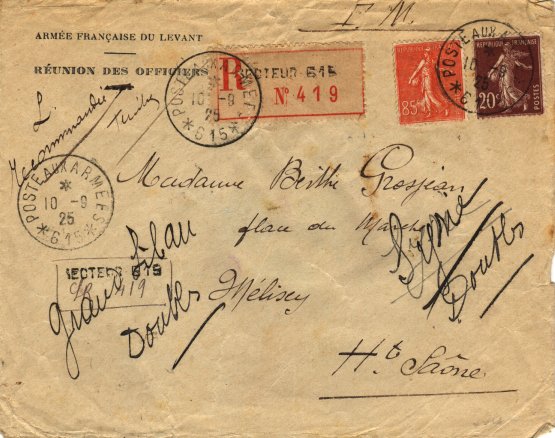 F. M.
ARMÉE FRANÇAISE DU LEVANT
RÉUNION DES OFFICIERS
R
SECTEUR 615
N° 419
POSTE AUX ARMEES
10 -9
25
* 615 *
REPUBLIQUE FRANÇAISE
85c
REPUBLIQUE FRANÇAISE
20c
POSTES
POSTE AUX ARMEES
10 -9
25
* 6
L. Recommandée
POSTE AUX ARMEES
10 -9
25
* 615 *
Madame Berthe Grosjean
place du Marché
Mélisey
Hte Saône
SECTEUR 615
419
Grand
Doubs
Doubs